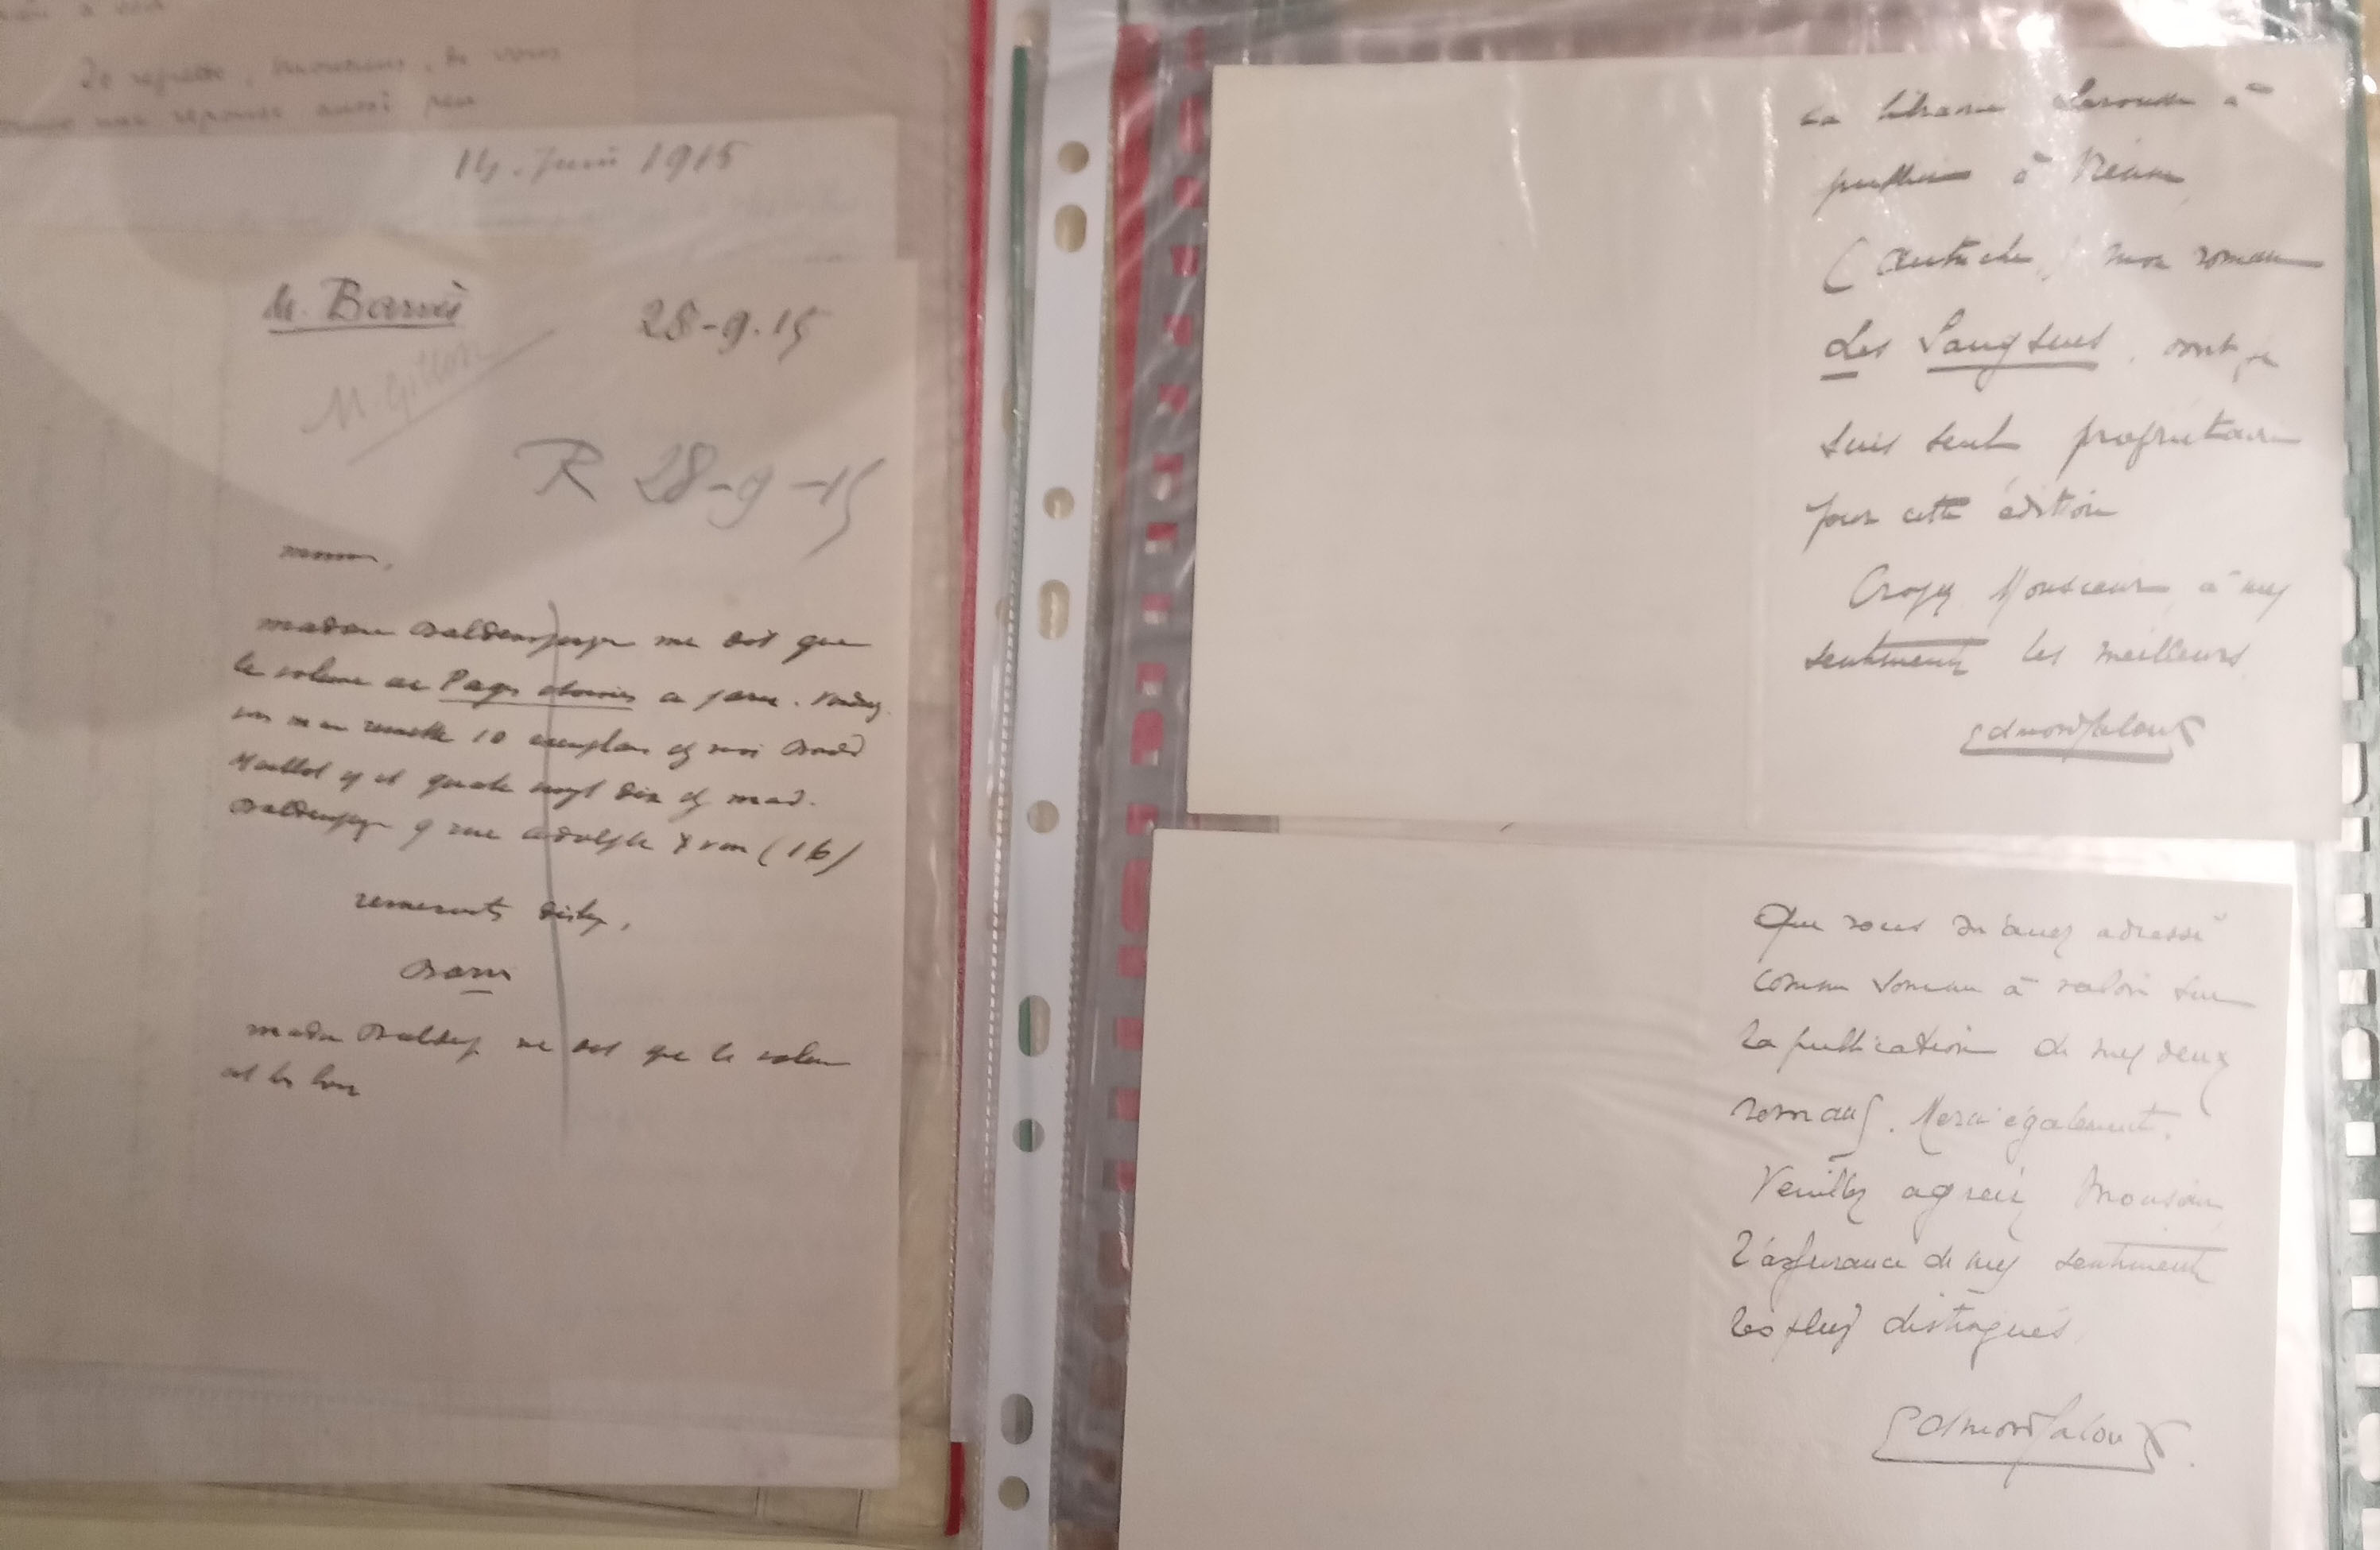 Je regrette, Monsieur, de vous
une réponse aussi peu
14. Juin 1915
M. Barrès
28-9.15
M. Gillon
R 28-9-15
madame Baldensperger me dit que
le volume de Pages choisies a paru. Voudriez
vous m'en remettre 10 exemplaires chez moi Boulvd
Maillot et quatre vingt dix chez mad.
Baldensperger 9 rue Adolphe Yvon (16)
remerciements
Barrès
madame Baldensp me dit que le volume
la librairie Larousse à
publier à Vienne,
(Autriche) mon roman
Les Sangsues, dont je
suis seul propriétaire
pour cette édition
Croyez Monsieur, à mes
sentiments les meilleurs
Edmond Jaloux
Que vous m'avez adressé
comme à valoir sur
la publication de mes deux
romans. Merci également.
Veuillez agréer Monsieur,
l'assurance de mes sentiments
les plus distingués.
Edmond Jaloux.